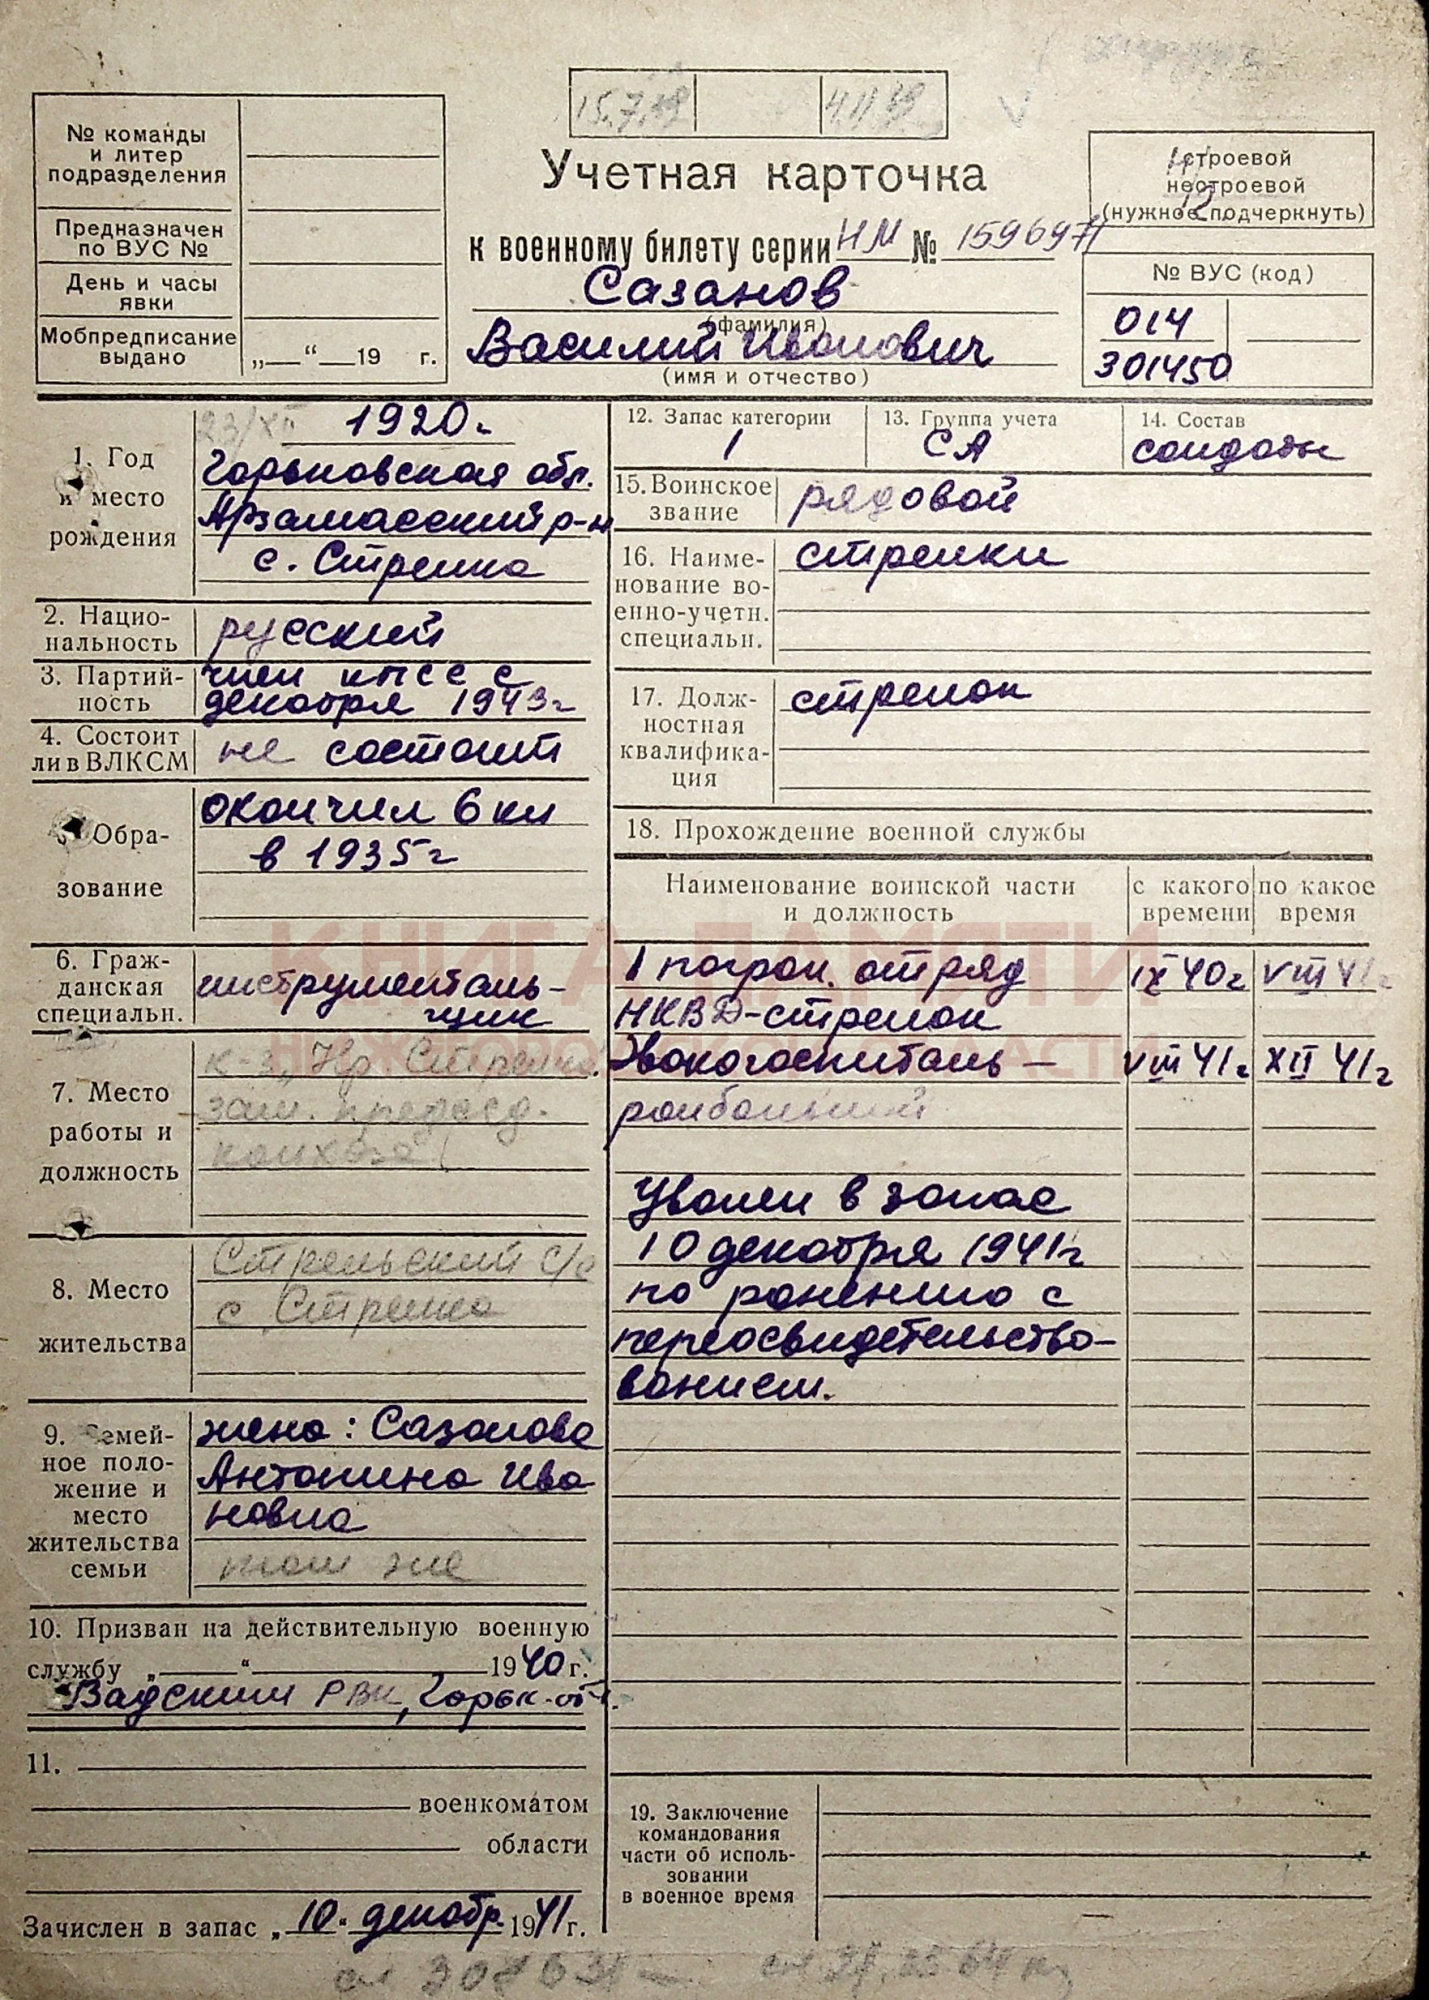 15.7.
4.11.39
№ команды
и литер
подразделения
Предназначен
по ВУС №
День и часы
явки
Мобпредписание
выдано
„—“ — 19 г.
Учетная карточка
к военному билету серии НМ № 1596971
Сазанов
(фамилия)
Василий Иванович
(имя и отчество)
строевой
нестроевой
(нужное подчеркнуть)
№ ВУС (код)
014
301450
1. Год
и место
рождения
23/XII 1920 г.
Горьковская обл.
Арзамасский р-н
с. Стрелка
2. Нацио-
нальность
русский
3. Партий-
ность
член КПСС с
декабря 1943 г
4. Состоит
ли в ВЛКСМ
не состоит
Обра-
зование
окончил 6 кл
в 1935 г
6. Граж-
данская
специальн.
инструменталь-
щик
7. Место
работы и
должность
к-з „Кр Стрелка
зам. председ.
колхоза
8. Место
жительства
Стрельский с/с
с Стрелка
9. Семей-
ное поло-
жение и
место
жительства
семьи
жена: Сазонова
Антонина Ива
новна
там же
10. Призван на действительную военную
службу „—“ — 1940 г.
Вадским РВК, Горьк. обл.
11.
военкоматом
области
Зачислен в запас „10“ декабр. 1941 г.
12. Запас категории
1
13. Группа учета
СА
14. Состав
солдаты
15. Воинское
звание
рядовой
16. Наиме-
нование во-
енно-учетн.
специальн.
стрелки
17. Долж-
ностная
квалифика-
ция
стрелок
18. Прохождение военной службы
Наименование воинской части
и должность
с какого
времени
по какое
время
1 погран. отряд IX 40 г VIII 41 г
НКВД-стрелок
Эвакогоспиталь — VIII 41 г XII 41 г
ранбольной
Уволен в запас
10 декабря 1941 г
по ранению с
переосвидетельство-
ванием.
19. Заключение
командования
части об исполь-
зовании
в военное время
КНИГА ПАМЯТИ
НИЖЕГОРОДСКОЙ ОБЛАСТИ